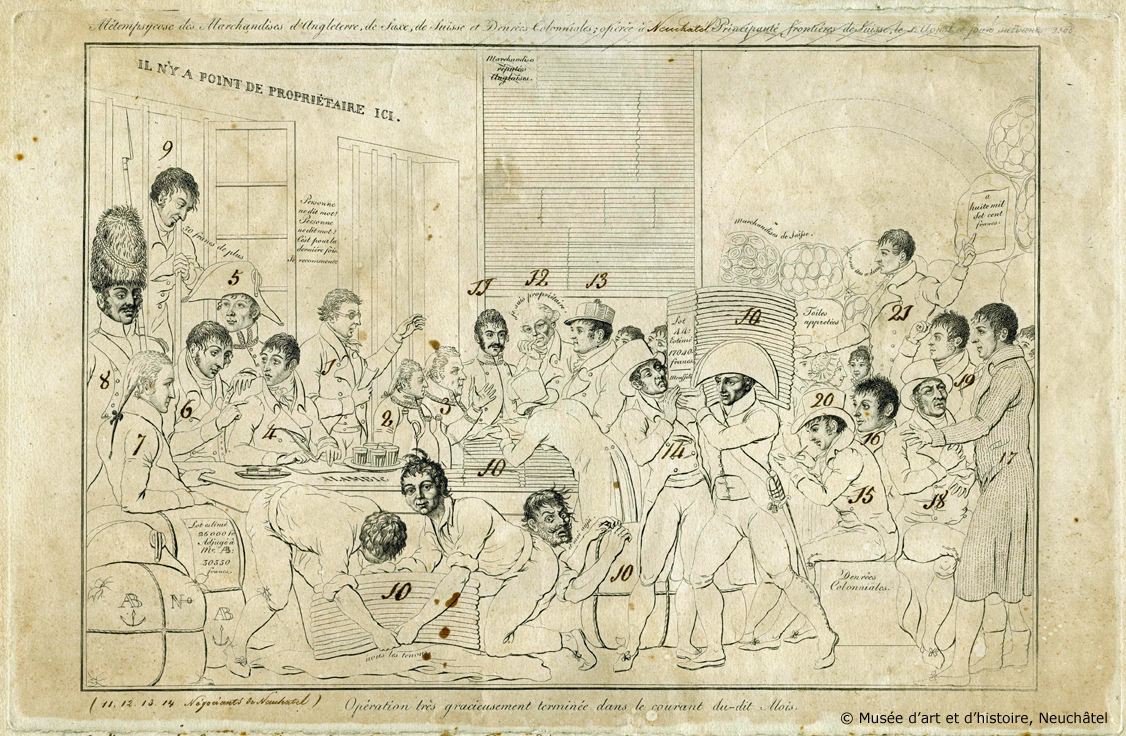 Métempsycose des Marchandises d'Angleterre, de Saxe, de Suisse et Denrées Colonniales; opérée à Neuchatel Principauté frontières de Suisse, le
IL N'Y A POINT DE PROPRIÉTAIRE ICI.
Marchandises
réputées
Anglaises.
9
50 francs de plus
Personne
ne dit mot!
Personne
ne dit mot!
C'est pour la
dernière fois
Je recommence
a
huite mil
set cent
francs.
Marchandises de Suisse.
5
11
12
13
je suis propriétaire
10
Lot
44:
Estimé
17040
francs
Toiles
appretées
21
1
8
6
2
3
4
7
19
20
16
14
17
15
18
10
ALAMBIC
Lot estimé
26000 fr
Adjugé à
Mr. B:
30550
francs.
10
10
Denrées
Colonniales.
AB
No
AB
nous les tenons
(11. 12. 13. 14 Négociants de Neuchatel)
Opération très gracieusement terminée dans le courant du-dit Mois.
© Musée d'art et d'histoire, Neuchâtel